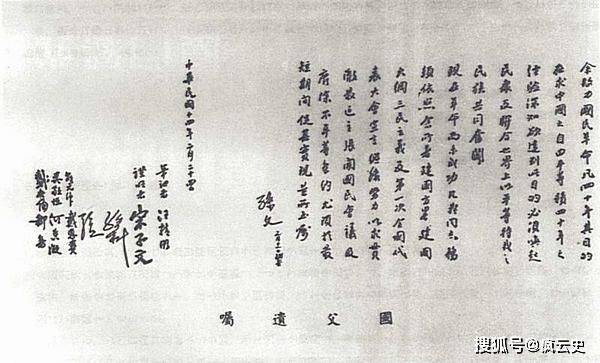 余致力國民革命凡四十年其目的
在求中國之自由平等積四十年之
經驗深知欲達到此目的必須喚起
民眾及聯合世界上以平等待我之
民族共同奮鬥
現在革命尚未成功凡我同志務
須依照余所著建國方略建國
大綱三民主義及第一次全國代
表大會宣言繼續努力以求貫
徹最近主張開國民會議及
廢除不平等條約尤須於最
短期間促其實現是所至囑
孫文
中華民國十四年二月二十四日
筆記者 汪精衛
證明者 宋子文
孫科
邵元冲 戴恩賽
吳敬恆 何香凝
戴季陶 鄒魯
國父遺囑
搜狐号@疯云史